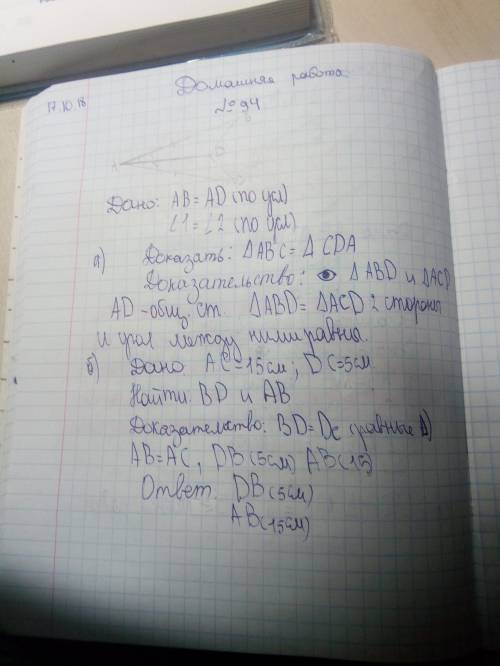 Домашняя работа.
17.10.18
№ 94
A
D
Дано: AB = AD (по усл)
∠1 = ∠2 (по усл)
а) Доказать: ΔABC = ΔCDA
Доказательство: ΔABD и ΔACD
AD - общ. ст. ΔABD = ΔACD 2 стороны
и угол между ними равны.
б) Дано AC = 15 см; DC = 5 см
Найти BD и AB
Доказательство: BD = DC (равные Δ)
AB = AC, DB (5 см) AB (15)
Ответ. DB (5 см)
AB (15 см)